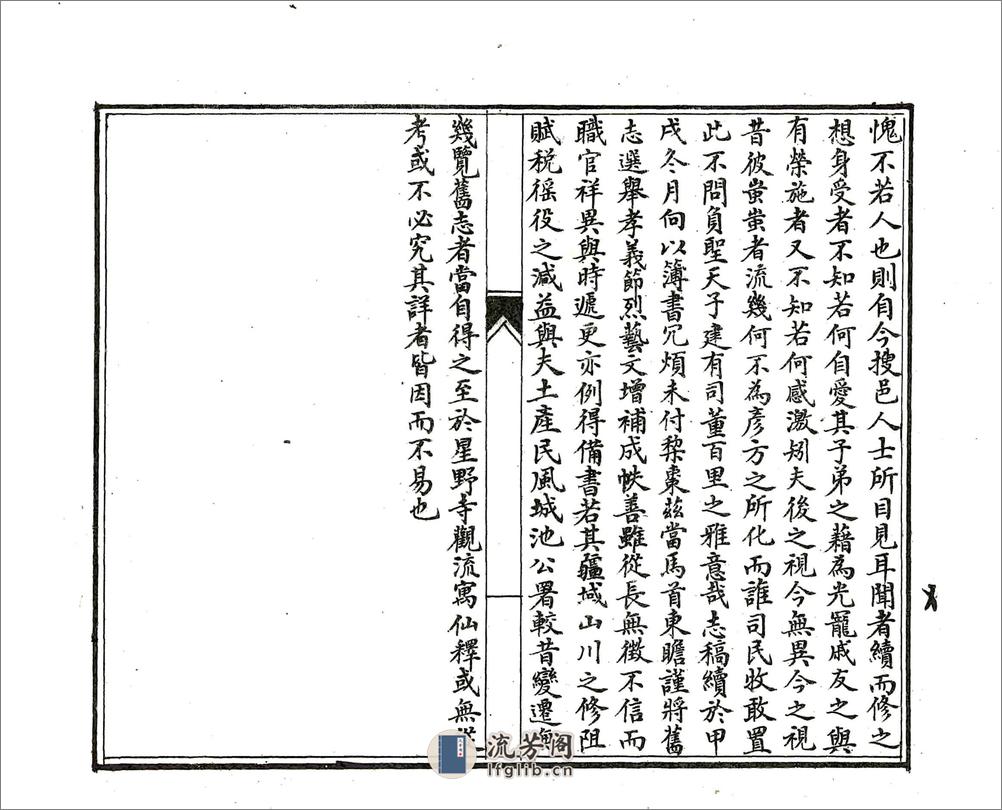 愧不若人也則自今搜邑人士所目見耳聞者續而修之
想身受者不知若何自愛其子弟之藉為光寵戚友之與
有榮施者又不知若何感激矧夫後之視今無異今之視
昔彼蚩蚩者流幾何不為彥方之所化而誰司民牧敢置
此不問負聖天子建有司董百里之雅意哉志稿續於甲
戌冬月向以簿書冗煩未付梨棗茲當馬首東瞻謹將舊
志選舉孝義節烈藝文增補成帙善雖從長無徵不信而
職官祥異與時遞更亦例得備書若其疆域山川之修阻
賦稅徭役之減益與夫土產民風城池公署較昔變遷無
幾覽舊志者當自得之至於星野寺觀流寓仙釋或無從
考或不必究其詳者皆因而不易也
流芳阁
lfglib.cn